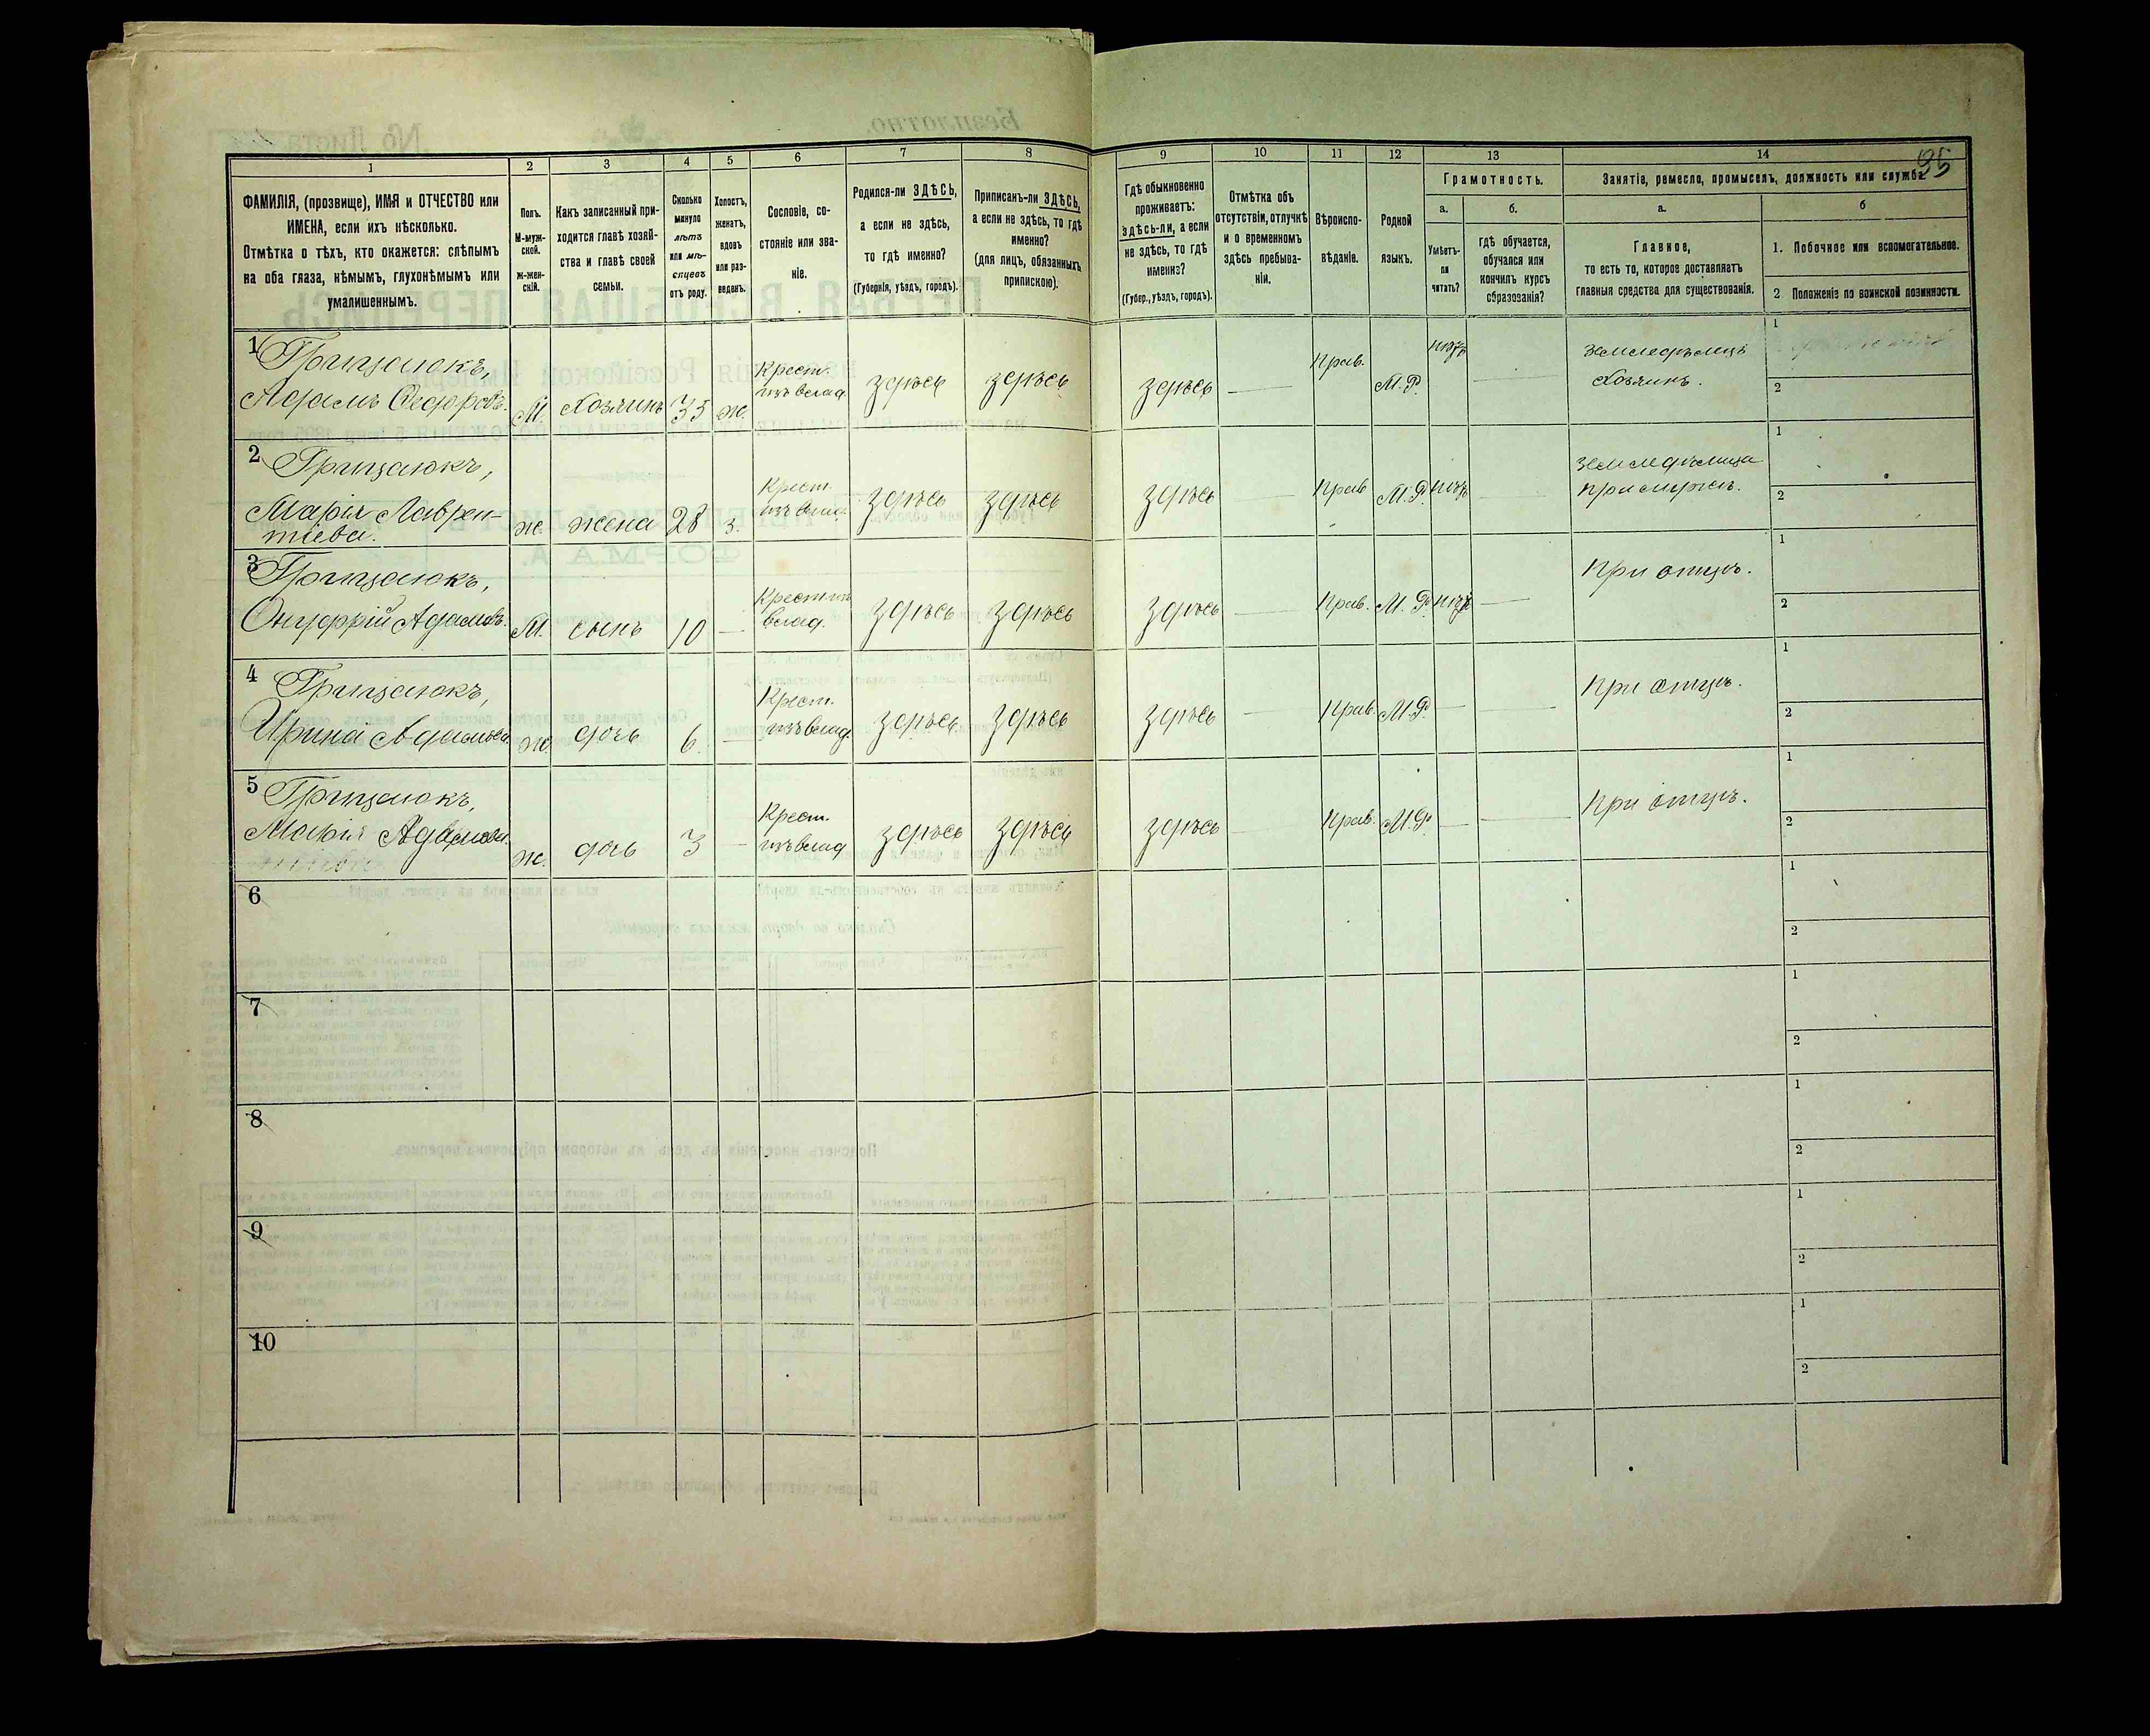 95
1
2
3
4
5
6
7
8
9
10
11
12
13
14
ФАМИЛІЯ, (прозвище), ИМЯ и ОТЧЕСТВО или
ИМЕНА, если ихъ нѣсколько.
Отмѣтка о тѣхъ, кто окажется: слѣпымъ
на оба глаза, нѣмымъ, глухонѣмымъ или
умалишеннымъ.
Полъ.
М-муж-
ской.
Ж-жен-
скій.
Какъ записанный при-
ходится главѣ хозяй-
ства и главѣ своей
семьи.
Сколько
минуло
лѣтъ
или мѣ-
сяцевъ
отъ роду.
Холостъ,
женатъ,
вдовъ
или раз-
веденъ.
Сословіе, со-
стояніе или зва-
ніе.
Родился-ли ЗДѢСЬ,
а если не здѣсь,
то гдѣ именно?
(Губернія, уѣздъ, городъ).
Приписанъ-ли ЗДѢСЬ,
а если не здѣсь, то гдѣ
именно?
(для лицъ, обязанныхъ
припискою).
Гдѣ обыкновенно
проживаетъ:
здѣсь-ли, а если
не здѣсь, то гдѣ
именно?
(Губер., уѣздъ, городъ).
Отмѣтка объ
отсутствіи, отлучкѣ
и о временномъ
здѣсь пребыва-
ніи.
Вѣроиспо-
вѣданіе.
Родной
языкъ.
Грамотность.
а.
Умѣетъ-
ли
читать?
б.
гдѣ обучается,
обучался или
кончилъ курсъ
образованія?
Занятіе, ремесло, промыселъ, должность или служба
а.
Главное,
то есть то, которое доставляетъ
главныя средства для существованія.
б
1. Побочное или вспомогательное.
2 Положеніе по воинской повинности.
1 Грицаюкъ,
Адамъ Ѳедоровъ. М. Хозяинъ 35 ж. Крест. изъ влад. здѣсь здѣсь здѣсь — Прав. М.Р. нѣтъ — Земледѣлецъ хозяинъ. 1 2
2 Грицаюкъ,
Марія Лаврен-
тіева. ж. жена 28 з. Крест. изъ влад. здѣсь здѣсь здѣсь — Прав М.Р. нѣтъ — Земледѣлица при мужѣ. 1 2
3 Грицаюкъ,
Онуфрій Адамовъ. М. сынъ 10 — Крест. изъ влад. здѣсь здѣсь здѣсь — Прав. М.Р. нѣтъ — При отцѣ. 1 2
4 Грицаюкъ,
Ирина Адамова ж. дочь 6. — Крест. изъ влад. здѣсь здѣсь здѣсь — Прав. М.Р. — — При отцѣ. 1 2
5 Грицаюкъ,
Марія Адамова. ж. дочь 3 — Крест. изъ влад здѣсь здѣсь здѣсь — Прав. М.Р. — — При отцѣ. 1 2
6 1 2
7 1 2
8 1 2
9 1 2
10 1 2